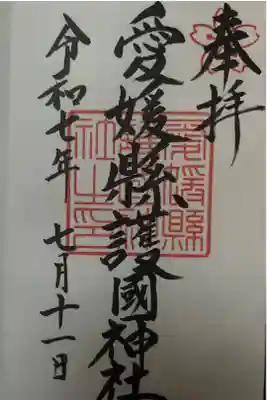 奉拝
愛媛縣護國神社
令和七年 七月十一日
愛媛縣護國神社之印